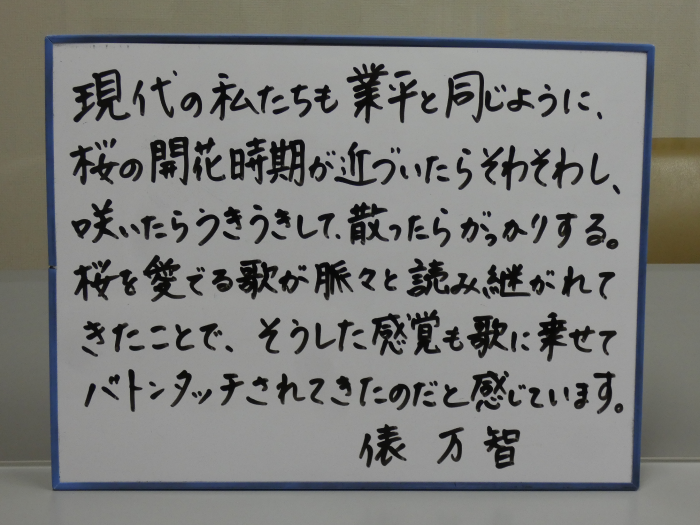 現代の私たちも業平と同じように、
桜の開花時期が近づいたらそわそわし、
咲いたらうきうきして、散ったらがっかりする。
桜を愛でる歌が脈々と読み継がれて
きたことで、そうした感覚も歌に乗せて
バトンタッチされてきたのだと感じています。
俵 万智